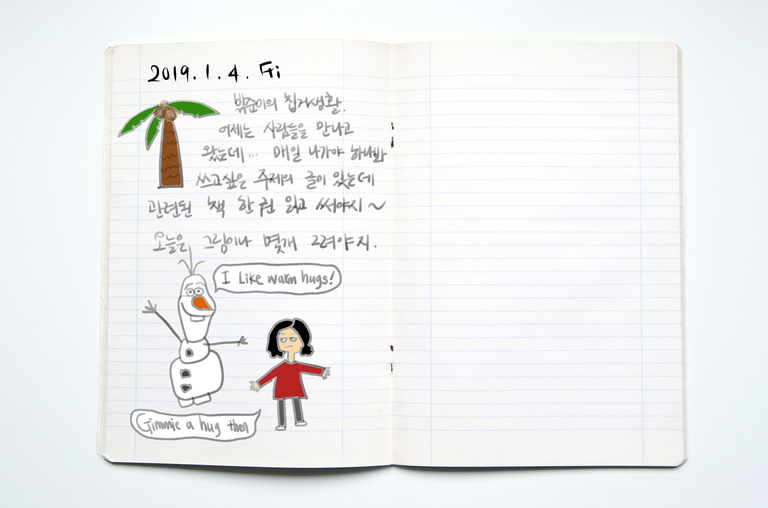 2019. 1. 4. Fri
밖순이의 집거생활.
어제는 사람들을 만나고
왔는데... 매일 나가야 하나봐
쓰고싶은 주제의 글이 있는데
관련된 책 한 권 읽고 써야지~
오늘은 그림이나 몇개 그려야지.
I Like warm hugs!
Gimmie a hug then